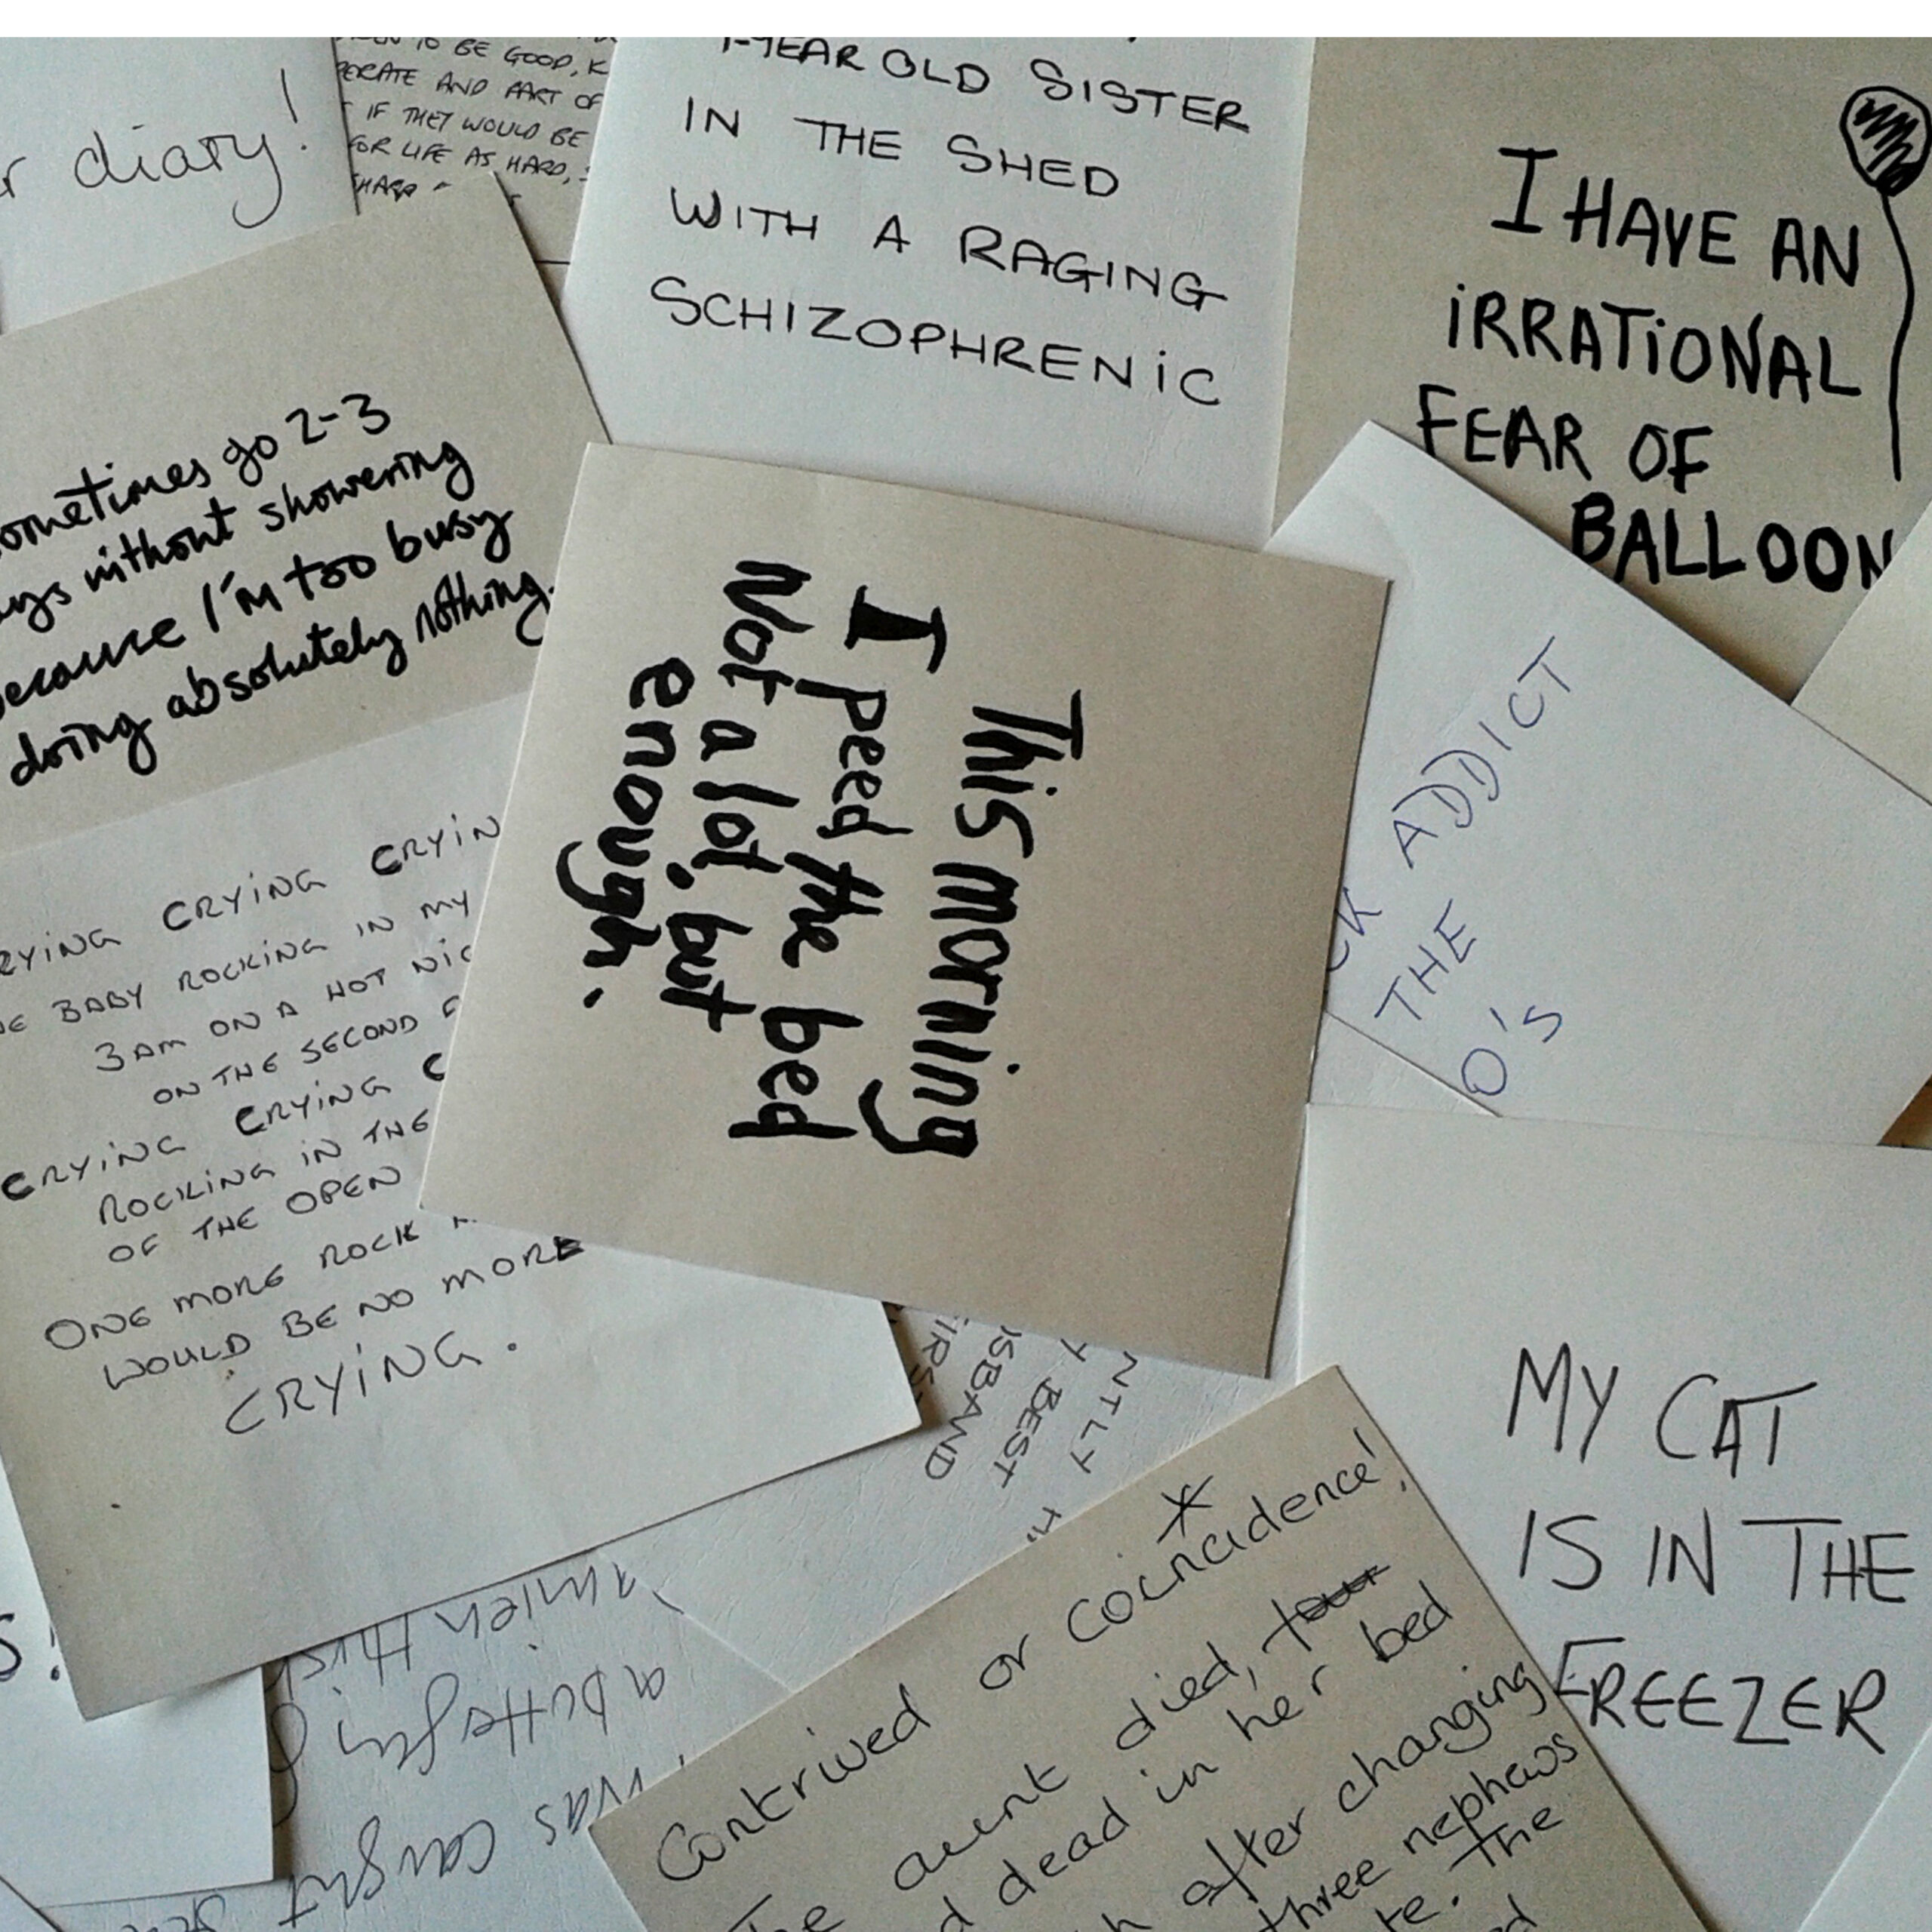 diary!
TO BE GOOD, K
AND PART OF
IF THEY WOULD BE
FOR LIFE AS HARD,
YEAR OLD SISTER
IN THE SHED
WITH A RAGING
SCHIZOPHRENIC
I HAVE AN
IRRATIONAL
FEAR OF
BALLOON
sometimes go 2-3
without showering
because I'm too busy
doing absolutely nothing.
This morning
I peed the bed
Not a lot, but
enough.
ADDICT
THE
O'S
CRYING CRYING CRYIN
BABY ROCKING IN MY
3AM ON A HOT NIG
ON THE SECOND
CRYING CRYING C
ROCKING IN THE
OF THE OPEN
ONE MORE ROCK
WOULD BE NO MORE
CRYING.
NTLY
BEST
SBAND
FIRS
MY CAT
IS IN THE
FREEZER
Contrived or coincidence!
The aunt died,
dead in her bed
after changing
three nephews
The
was caught
a butterfly